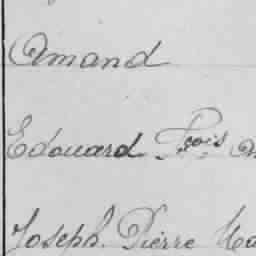 Amand
Edouard Fçois
Joseph. Pierre